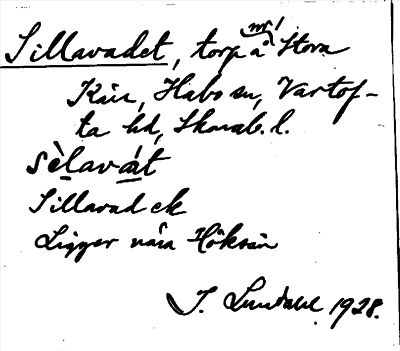 Sillavadet, torp å nr 1 Stora
Kärr, Habo sn, Vartof-
ta hd, Skarab. l.
sèlavát
Sillavadek
Ligger nära Hökesån
J. Lundahl 1928.